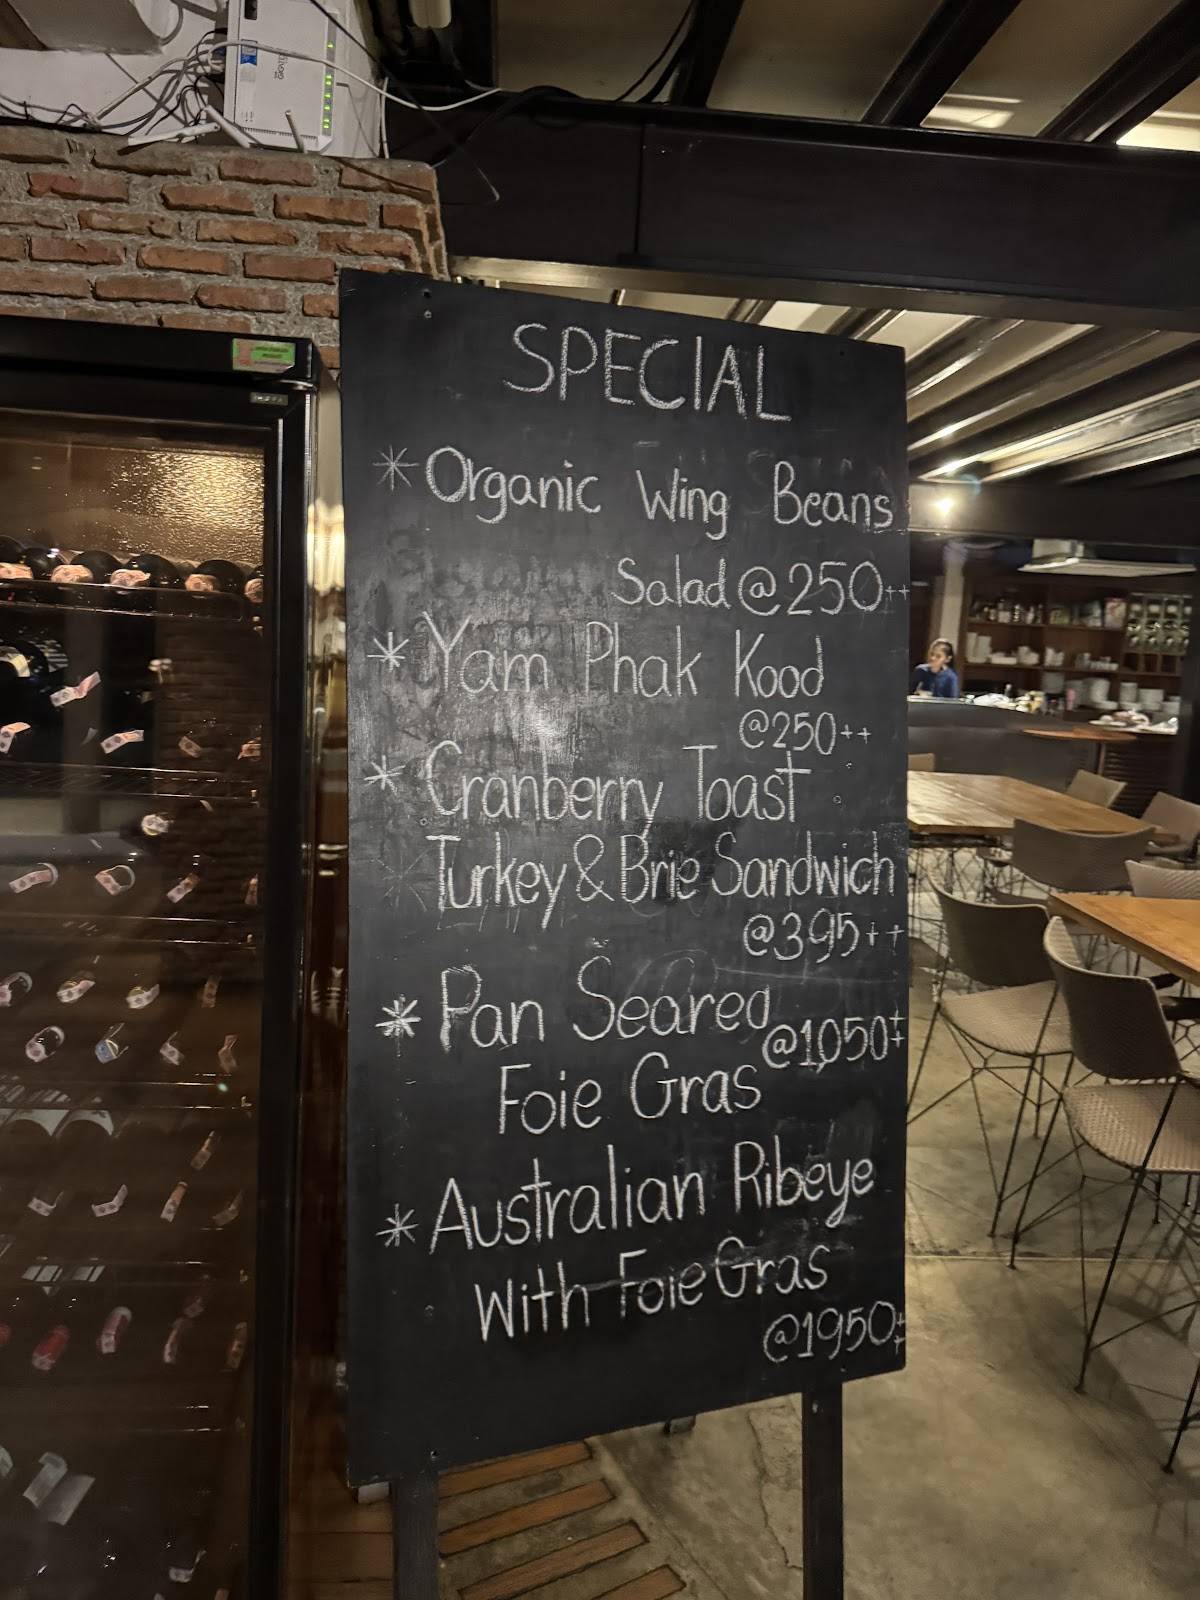 SPECIAL
* Organic Wing Beans
Salad @250++
* Yam Phak Kood
@250++
* Cranberry Toast
Turkey & Brie Sandwich
@395++
* Pan Seared
@1,050++
Foie Gras
* Australian Ribeye
With Foie Gras
@1950++